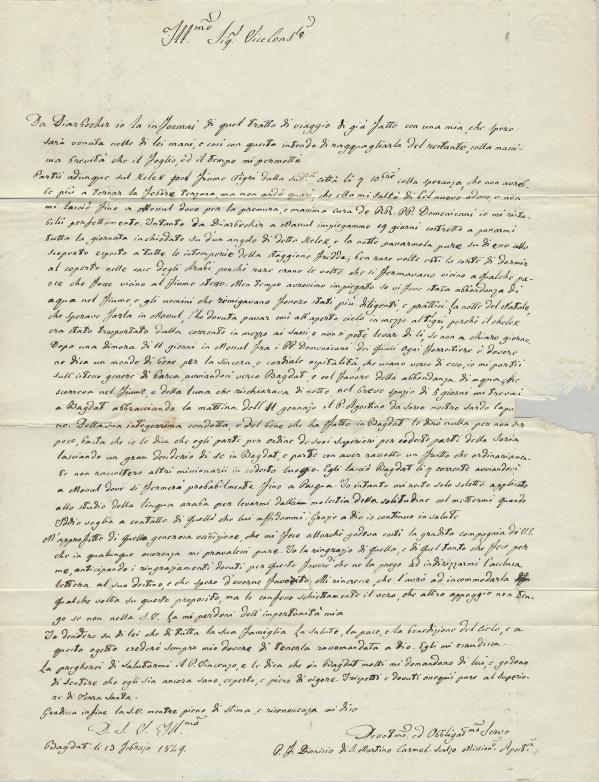 Ill.mo Sig.r Viceconsole
Da Diarbechir io la informai di quel tratto di viaggio di già fatto con una mia, che spero
sarà venuta nelle di lei mani, e così con questa intendo di ragguagliarla del restante, colla massi-
ma brevità che il foglio, ed il tempo mi permette
Partii adunque sul Kelek pel fiume Tigri dalla sud.a città li 7 10bre colla speranza, che non avreb-
be più a tornar la febbre terzana ma non andò guari, che ella mi saltò di bel nuovo adosso, e non
mi lasciò fino a Mossul dove per la premura, e maxima cura de RR. PP. Domenicani io mi rista-
bilii perfettamente. Intanto da Diarbechir a Mossul impiegammo 19 giorni costretto a passarmi
tutta la giornata inchiodato su d'un angolo di detto Kelek, e la notte passarmela pure su di esso allo
scoperto esposto a tutte le intemperie della staggione fredda; ben rare volte ebbi la sorte di dormir
al coperto nelle case degli Arabi perché rare erano le volte che si fermavano vicino a qualche pa-
ese che fosse vicino al fiume stesso. Men tempo avressimo impiegato se vi fosse stata abbondanza di
aqua nel fiume, e gli uomini che remigavano fossero stati più diligenti, e prattici, la notte del Natale,
che speravo farla in Mossul l'ho dovuta passar così all'aperto cielo in mezzo al Tigri, perché il chelek
era stato trasportato dalla corrente in mezzo ai sassi e non si poté levar di lì, se non a chiaro giorno.
Dopo una dimora di 11 giorni in Mossul fra i PP. Domenicani dei quali ogni forestiere è dovere
ne dica un mondo di bene per la sincera, e cordiale ospitalità, che usano verso di esso, io mi partii
sull'istesso genere di barca avviandosi verso Bagdat, e col favore della abbondanza di aqua, che
scorreva nel fiume e della luna che rischiarava di notte nel breve spazio di 5 giorni mi trovai
a Bagdat abbracciando la mattina dell'11 gennajo il P. Agostino da Sorio nostro sardo capu-
no. Della sua integerrima condotta, e del bene che ha fatto in Bagdat le dirò nulla per non dir
poco, basta che io le dica che egli parte per ordine de suoi superiori per codeste parti della Soria
lasciando un gran desiderio di se in Bagdat, e parte con aver raccolto un frutto che ordinariamen-
te non raccolsero altri missionarii in codesto luogo. Egli lasciò Bagdat li 7 corrente avviandosi
a Mossul dove si fermerà probabilmente fino a Pasqua. Io intanto mi resto solo soletto applicato
allo studio della lingua araba per levarmi dalla molestia della solitudine col mettermi quando
Iddio voglia a contatto di quelli che lui affidommi. Grazie a Dio io continuo in salute
M'approfitto di quella generosa esibizione, che mi fece allorché godeva costì la gradita compagnia di V.S.
che in qualunque occorenza mi pravalessi pure. Io la ringrazio di quella, e di quel tanto che fece per
me, anticipando i ringraziamenti dovuti per questo favore che ne la prego ad indirizzarmi l'acclusa
lettera al suo destino, e che spero d'esserne favorito. Mi rincresce, che l'avrò ad incommodarla
qualche volta su questo proposito, ma le confesso schiettamente il vero, che altro appoggio non ten-
go se non nella S.V. La mi perdoni dell'importunità mia
Io desidero su di lei che di tutta la sua famiglia la salute, la pace, e la benedizione del Cielo, e a
questo ogetto crederò sempre mio dovere di tenerla raccomandata a Dio. Egli mi esaudisca.
La pregherei di salutarmi il P. Vincenzo, e le dica che in Bagdat molti mi domandano di lui, e godono
di sentire che egli sia ancora sano, e sperto, e pieno di vigore. I rispetti e dovuti ossequi pure al Superio-
re di Terra Santa.
Gradisca infine la S.V. mentre pieno di stima, e riconoscenza mi dico
D. S. V. Ill.ma
Devotmo. ed Obbligatmo. Servo
Bagdat li 13 Febrajo 1849.
P. F. Dionisio di S. Martino Carmel. Scalzo Mission.o Apost.co